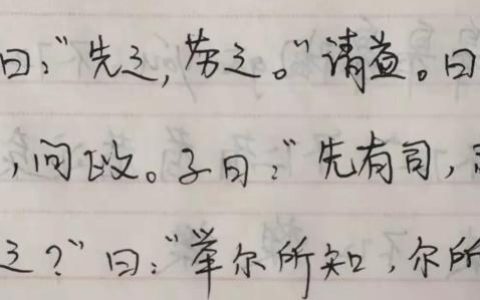 曰:“先之,劳之。”请益。曰
,问政。子曰:“先有司,
之?”曰:“举尔所知,尔所